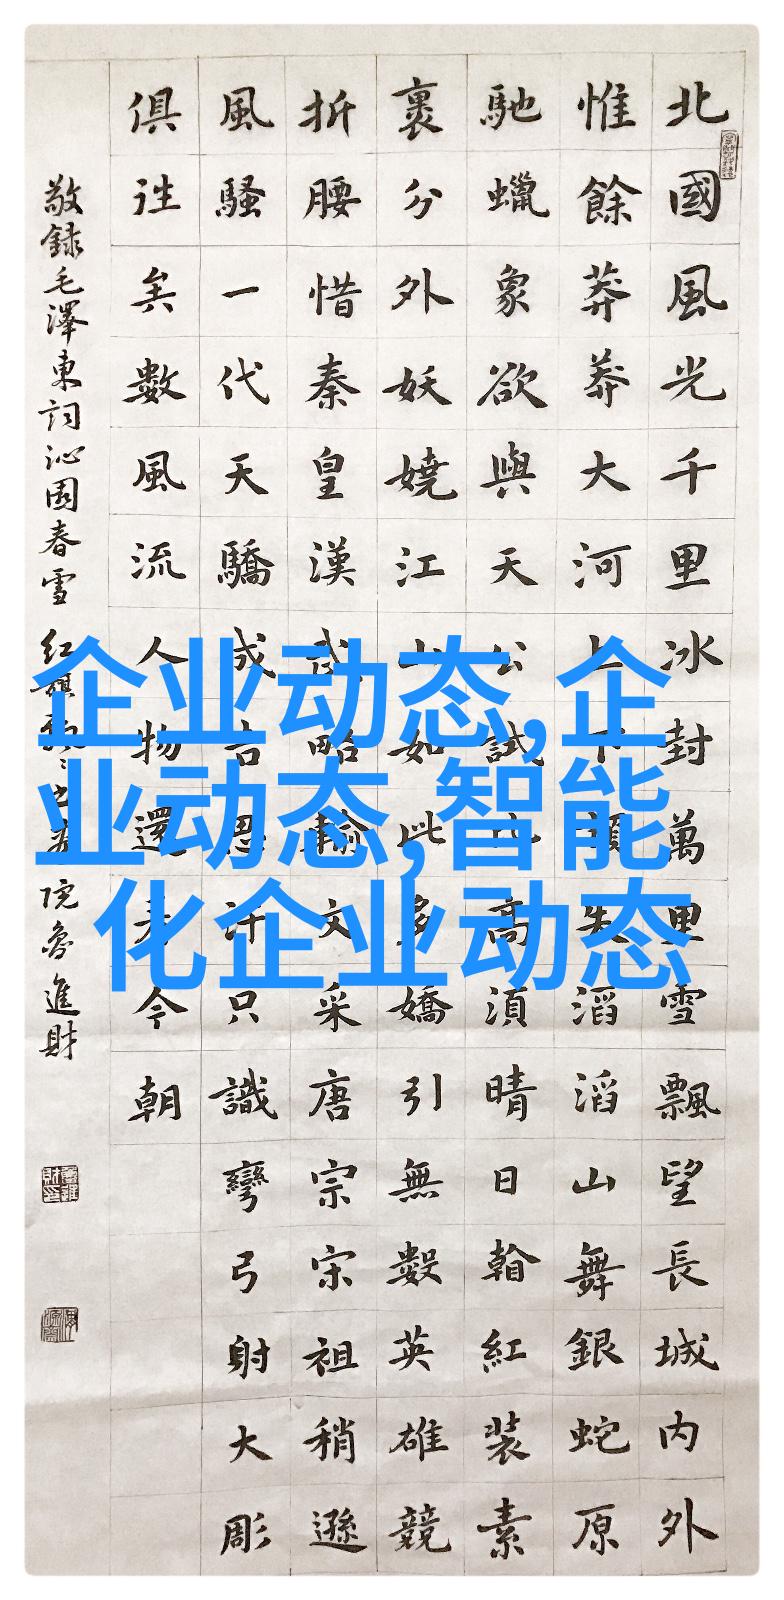 北國風光千里冰封萬里雪飄望長城內外
惟餘莽莽大河上下頓失滔滔山舞銀蛇原
馳蠟象欲與天公試比高須晴日看紅裝素
裹分外妖嬈江山如此多嬌引無數英雄競
折腰惜秦皇漢武略輸文采唐宗宋祖稍遜
風騷一代天驕成吉思汗只識彎弓射大彫
俱往矣數風流人物還看今朝
敬録毛澤東詞沁園春雪 紅旗之院魯進財
企业动态,企
业动态,智能
化企业动态